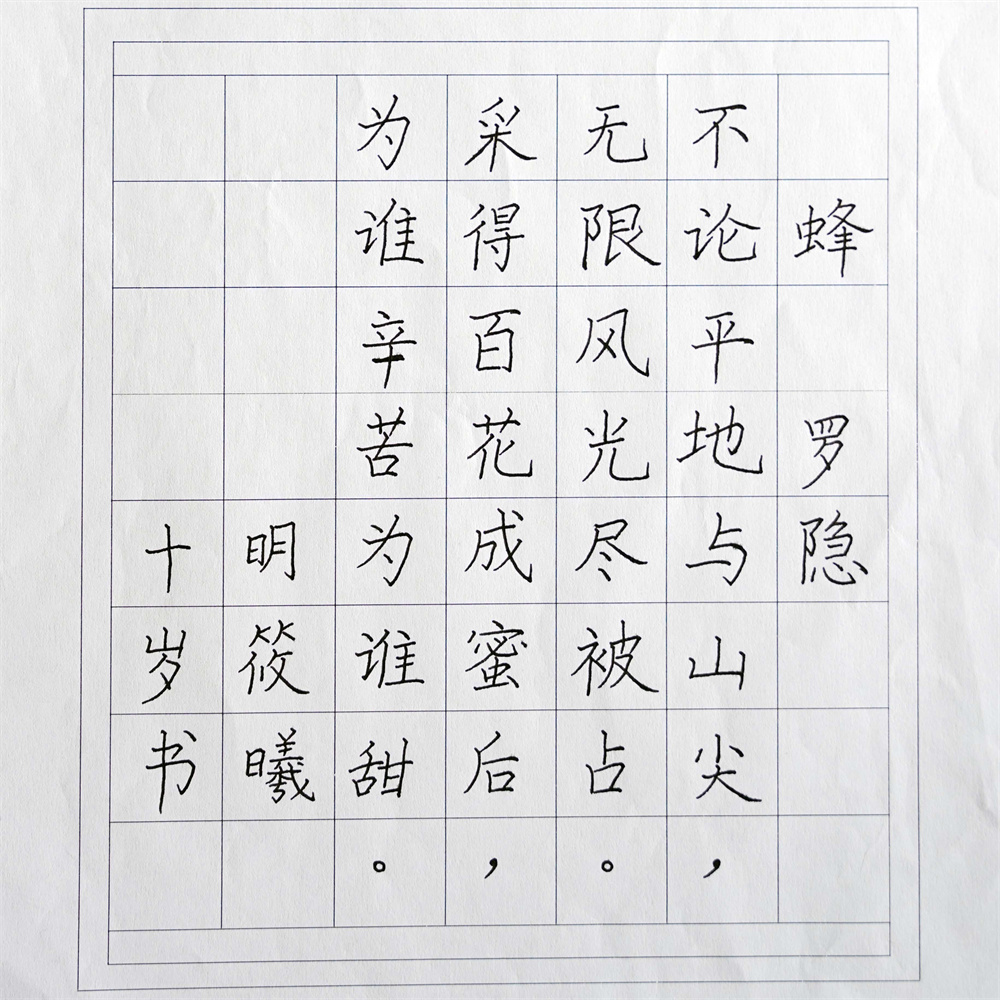 蜂 罗隐
不论平地与山尖，
无限风光尽被占。
采得百花成蜜后，
为谁辛苦为谁甜。
明筱曦
十岁书